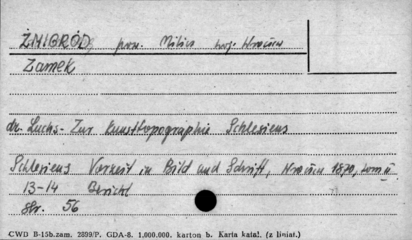 ŻMIGRÓD, pow. Milicz woj. Wrocław
Zamek
dr. Luchs - Zur Kunsttopographie Schlesiens
Schlesiens Vorzeit in Bild und Schrift, Wrocław 1870, tom II
13-14 Bericht
Str. 56
CWD B-15b.zam. 2899/P. GDA-8. 1.000.000. karton b. Karta katal. (z liniat.)